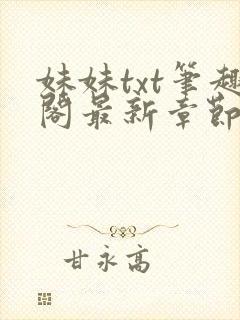 妹妹txt筆趣
閣最新章節
甘永高